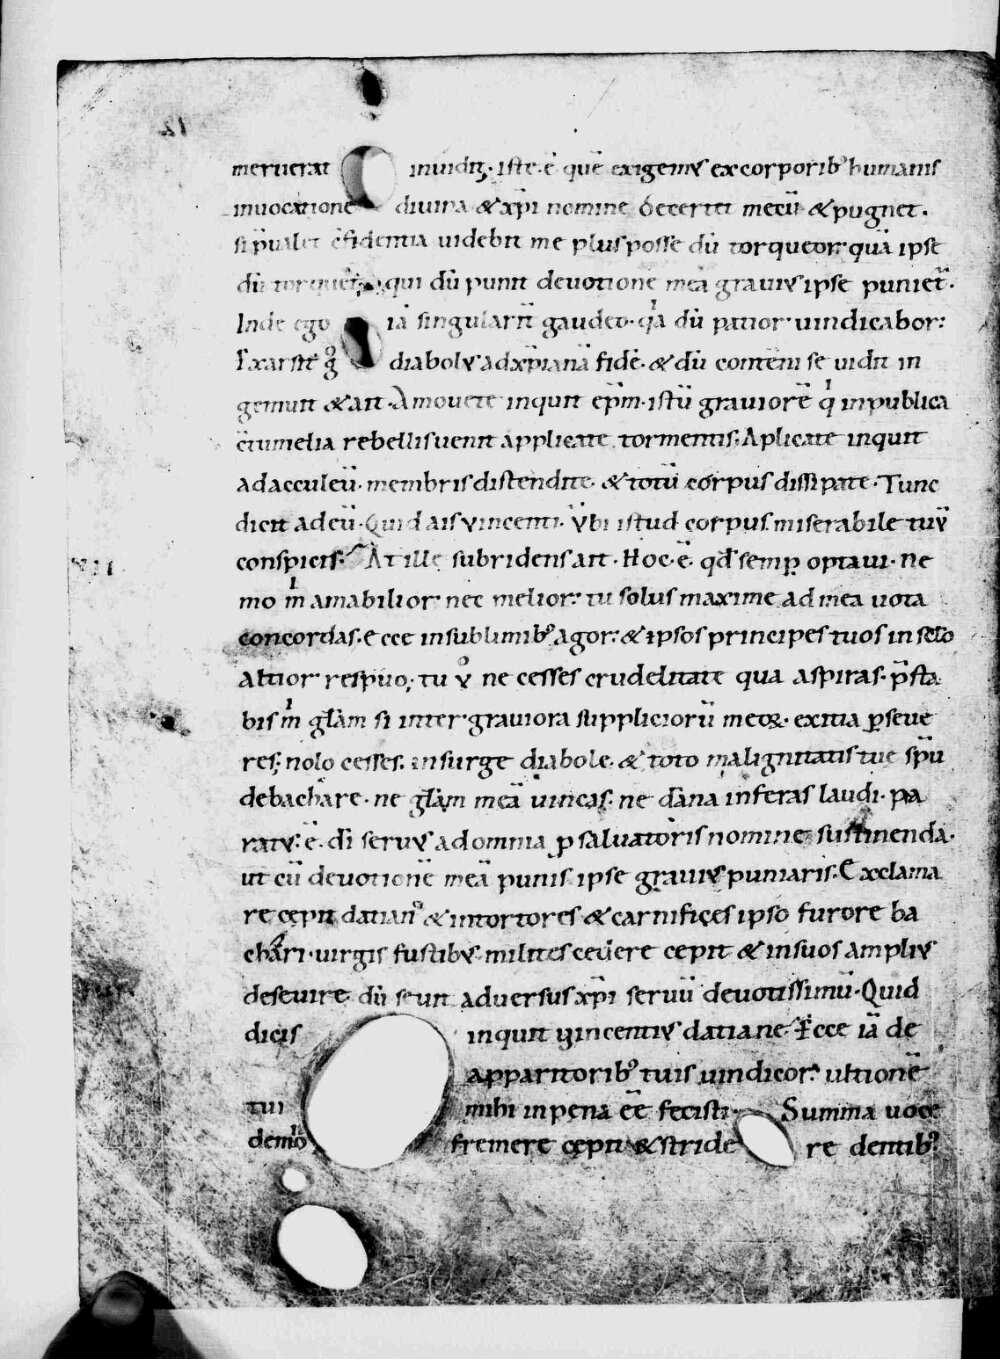 12
meruerat inuidit᷑· iste· ē quē exigemꝰ ex corporibꝰ humanis
inuocatione diuina & xp̄i nomine decertet mecū & pugnet·
si p̄ualet c̄fidentia uidebit me plus posse dū torqueor· quā ipse
dū torquet᷑ qui dū punit deuotionē meā grauiꝰ ipse puniet᷑·
Inde ego iā singularit̄ gaudeo· qͥa dū patior· uindicabor:
Exarsit gͦ diabolꝰ ad xp̄ianā fidē· & dū contēni se uidit in
gemuit & ait· Amouete inquit ep̄m· istū grauiorē qͥ in publica
c̄tumelia rebellis uenit applicate tormentis; Aplicate inquit
ad acculeū· membris distendite· & totū corpus dissipate· Tunc
dicit ad eū· Quid ais vincenti· vbi istud corpus miserabile tuū
conspicis· At ille subridens ait· Hoc· ē· qd̄ semꝑ optaui· ne
mo mͥ amabilior nec melior: tu solus maxime ad mea uota
concordas· ecce in sublimibꝰ agor: & ipsos principes tuos in sc̄lo
altior respuo; tu vͦ ne cesses crudelitate qua aspiras· p̄sta
bis mͥ gl̄am si inter grauiora suppliciorū meoꝝ exitia ꝑseue
res; nolo cesses· insurge diabole· & toto malignitatis tue sp̄u
debachare· ne gl̄am meā uincas· ne dāna inferas laudi· pa
ratꝰ· ē· di seruꝰ ad omnia ꝓ saluatoris nomine sustinenda·
ut cū deuotionē meā punis ipse grauiꝰ puniaris· Exclama
re cepit datianꝰ & in tortores & carnifices ipso furore ba
chari· uirgis fustibꝰ milites cedere cepit & in suos ampliꝰ
deseuire· dū seuit aduersus xp̄i seruū deuotissimū· Quid
dicis inquit vincentiꝰ datiane· Ecce iā de
apparitoribꝰ tuis uindicor· ultionē
tui mihi in pena eē fecisti· Summa uoce
fremere cepit & stridere dentibꝰ